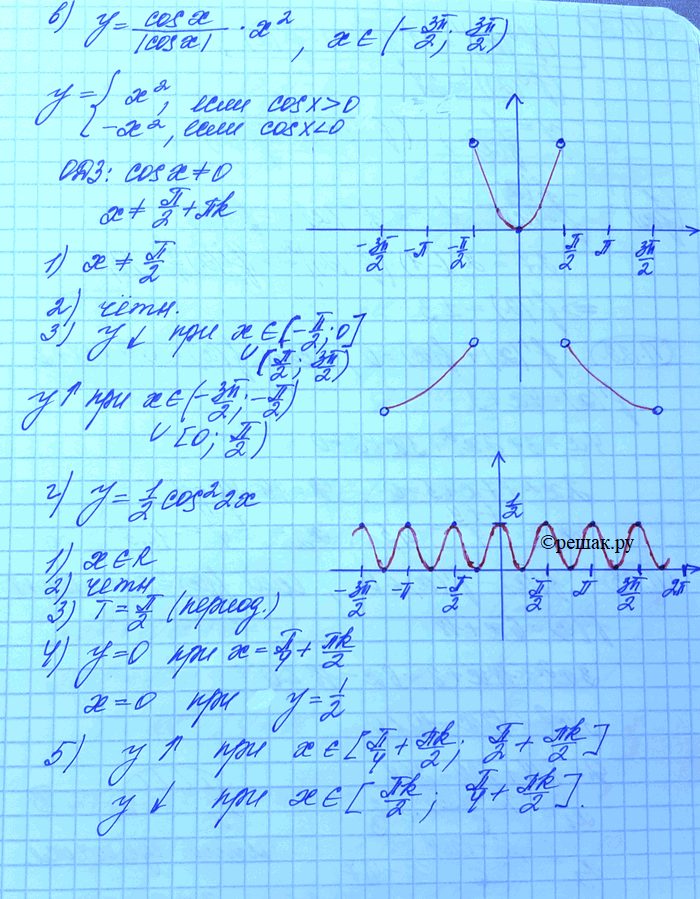 в) y = cosx/|cosx| · x², x∈(-3π/2; 3π/2)
y = { x², если cosx>0
-x², если cosx<0
ОДЗ: cosx≠0
x≠π/2+πk
1) x≠π/2
2) чётн.
3) y↓ при x∈[-π/2; 0]
∪(π/2; 3π/2)
y↑ при x∈(-3π/2; -π/2)
∪[0; π/2)
-3π/2 -π -π/2 π/2 π 3π/2
г) y=1/2 cos²2x
1) x∈R
2) чётн
3) T=π/2 (период.)
4) y=0 при x=π/4+πk/2
x=0 при y=1/2
5) y↑ при x∈[π/4+πk/2; π/2+πk/2]
y↓ при x∈[πk/2; π/4+πk/2].
1/2
©решак.ру
-3π/2 -π -π/2 π/2 π 3π/2 2π